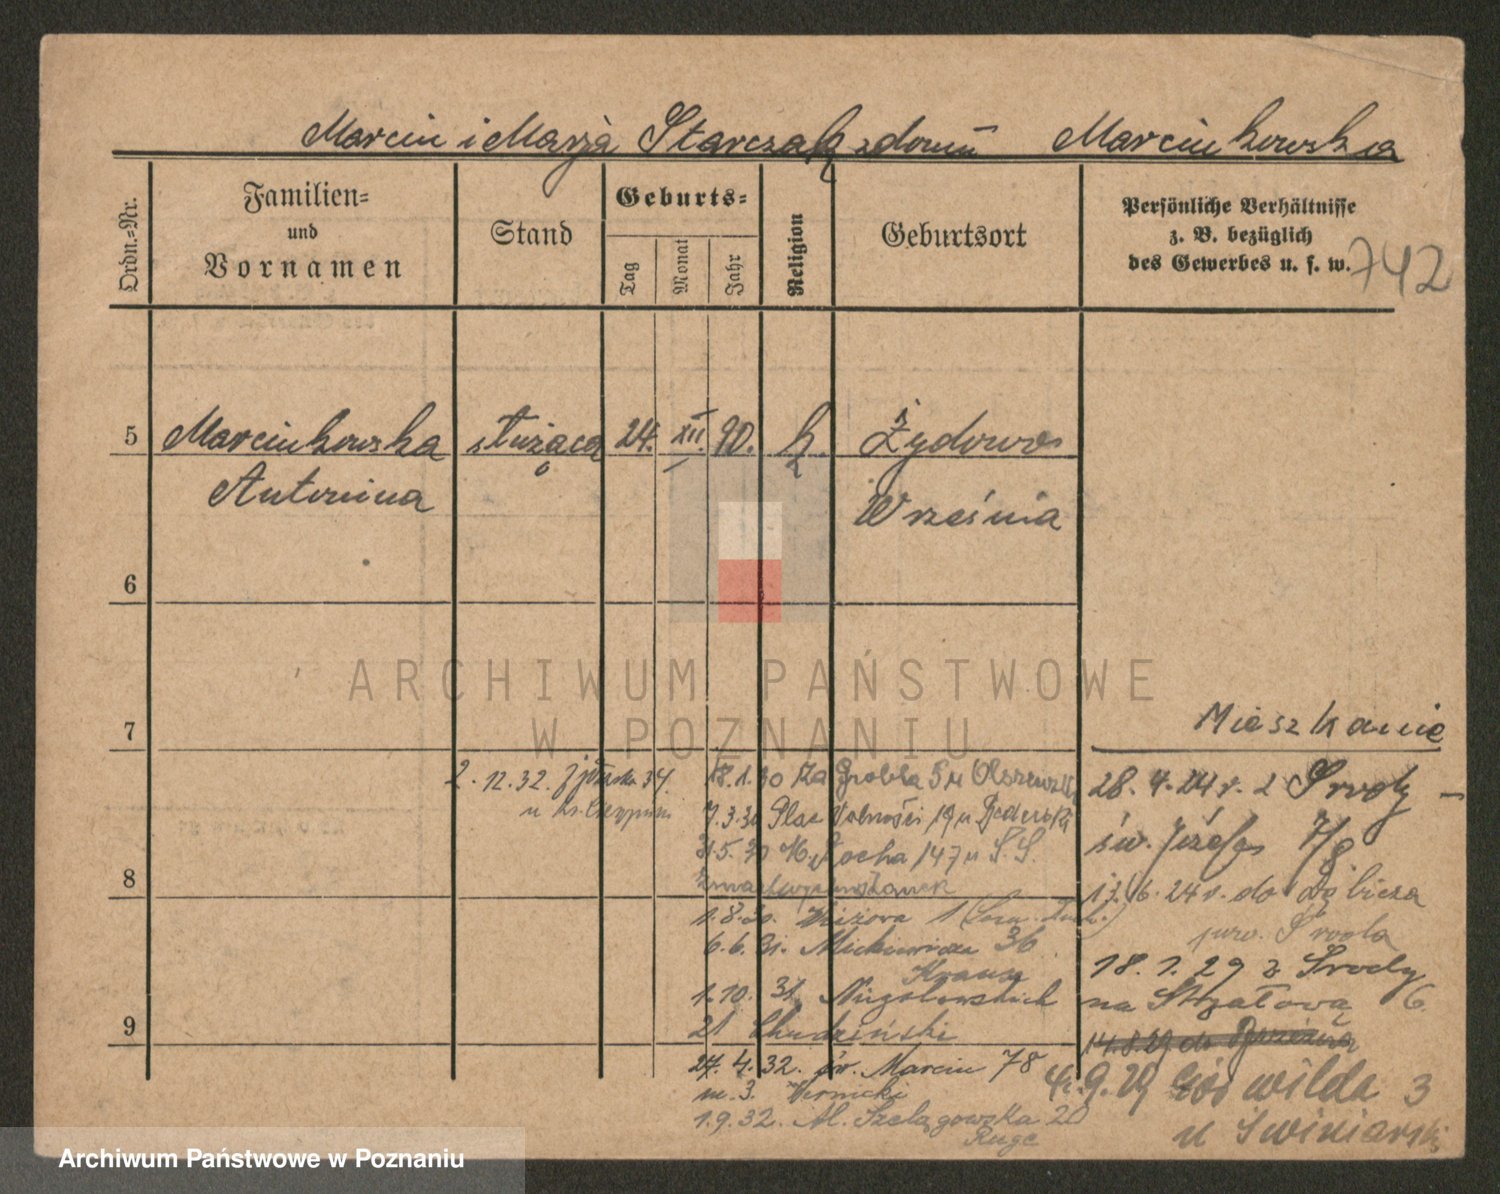 Marcin i Marja Starczak z domu Marcinkowska
Ordn.=Nr.
Familien=
und
Vornamen
Stand
Geburts=
Tag
Monat
Jahr
Religion
Geburtsort
Persönliche Verhältnisse
z. B. bezüglich
des Gewerbes u. s. w.
742
5
Marcinkowska służąca 24. XII. 90. k. Żydowo
Antonina
Września
6
7
8
9
Mieszkanie
28. 4. 24 r. z Środy
św. Józefa 7/8
17. 6. 24 r. do
pow. Środa
18. 1. 29 z Środy
na Strzałową 6
14.8.29 do
4.9.29 Gór wilda 3
u Swiniarski
2.12.32. 34.
u
18.1.30 Za Groblą 5 u Olszewski
7.3.30 Plac Wolności 19 u
31.5.30 M. Rocha 147 u S.S.
Zmartwychwstanek
1.8.30. 1
6.6.31. Mickiewicza 36
Krause
1.10.31. Niegolewskich
21 Chudziński
27.4.32. św. Marcin 78
m. 3. Wernicki
1.9.32. Al. Szelągowska 20
Ruge
ARCHIWUM PAŃSTWOWE
W POZNANIU
Archiwum Państwowe w Poznaniu